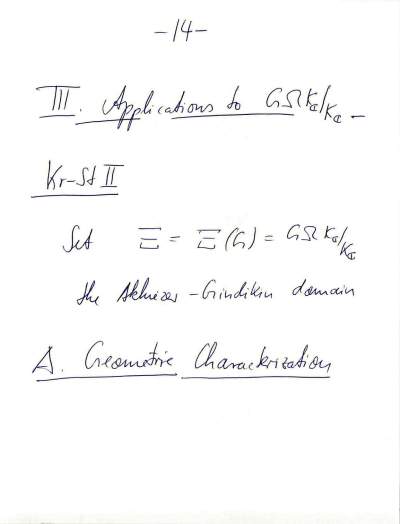 -14-
III. Applications to GΩK_ℂ/K_ℂ -
Kr-St II
Set Ξ = Ξ(G) = GΩK_ℂ/K_ℂ
the Akhiezer-Gindikin domain
A. Geometric Characterization